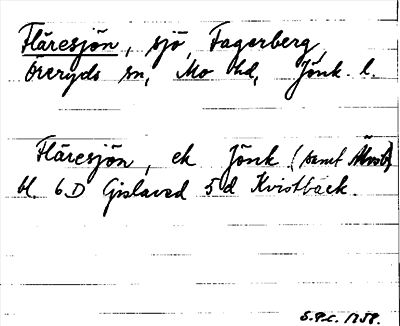 Fläresjön, sjö, Fagerberg,
Öreryds sn, Mo hd, Jönk. l.
Fläresjön, ek Jönk (samt Älvsb)
bl. 6D Gislaved 5d Kvistbäck.
S.P.C. 1958.